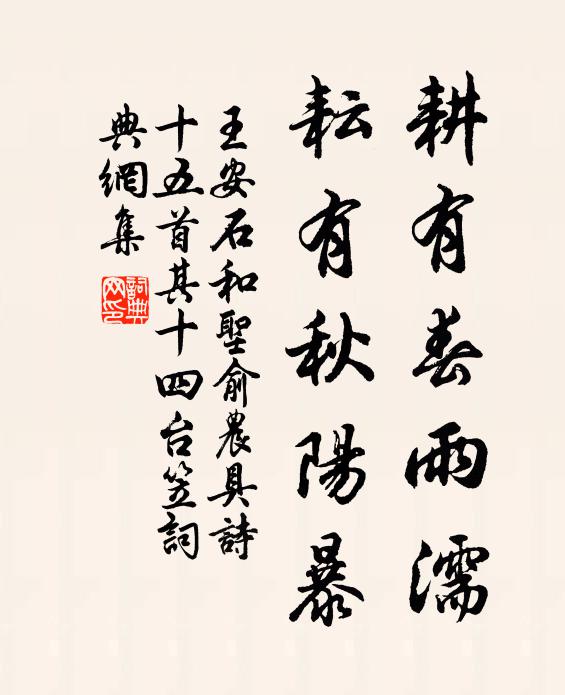 耕有春雨濡
耘有秋陽暴
王安石和聖俞農具詩
十五首其十四台笠詞
典網集
詞典
网印